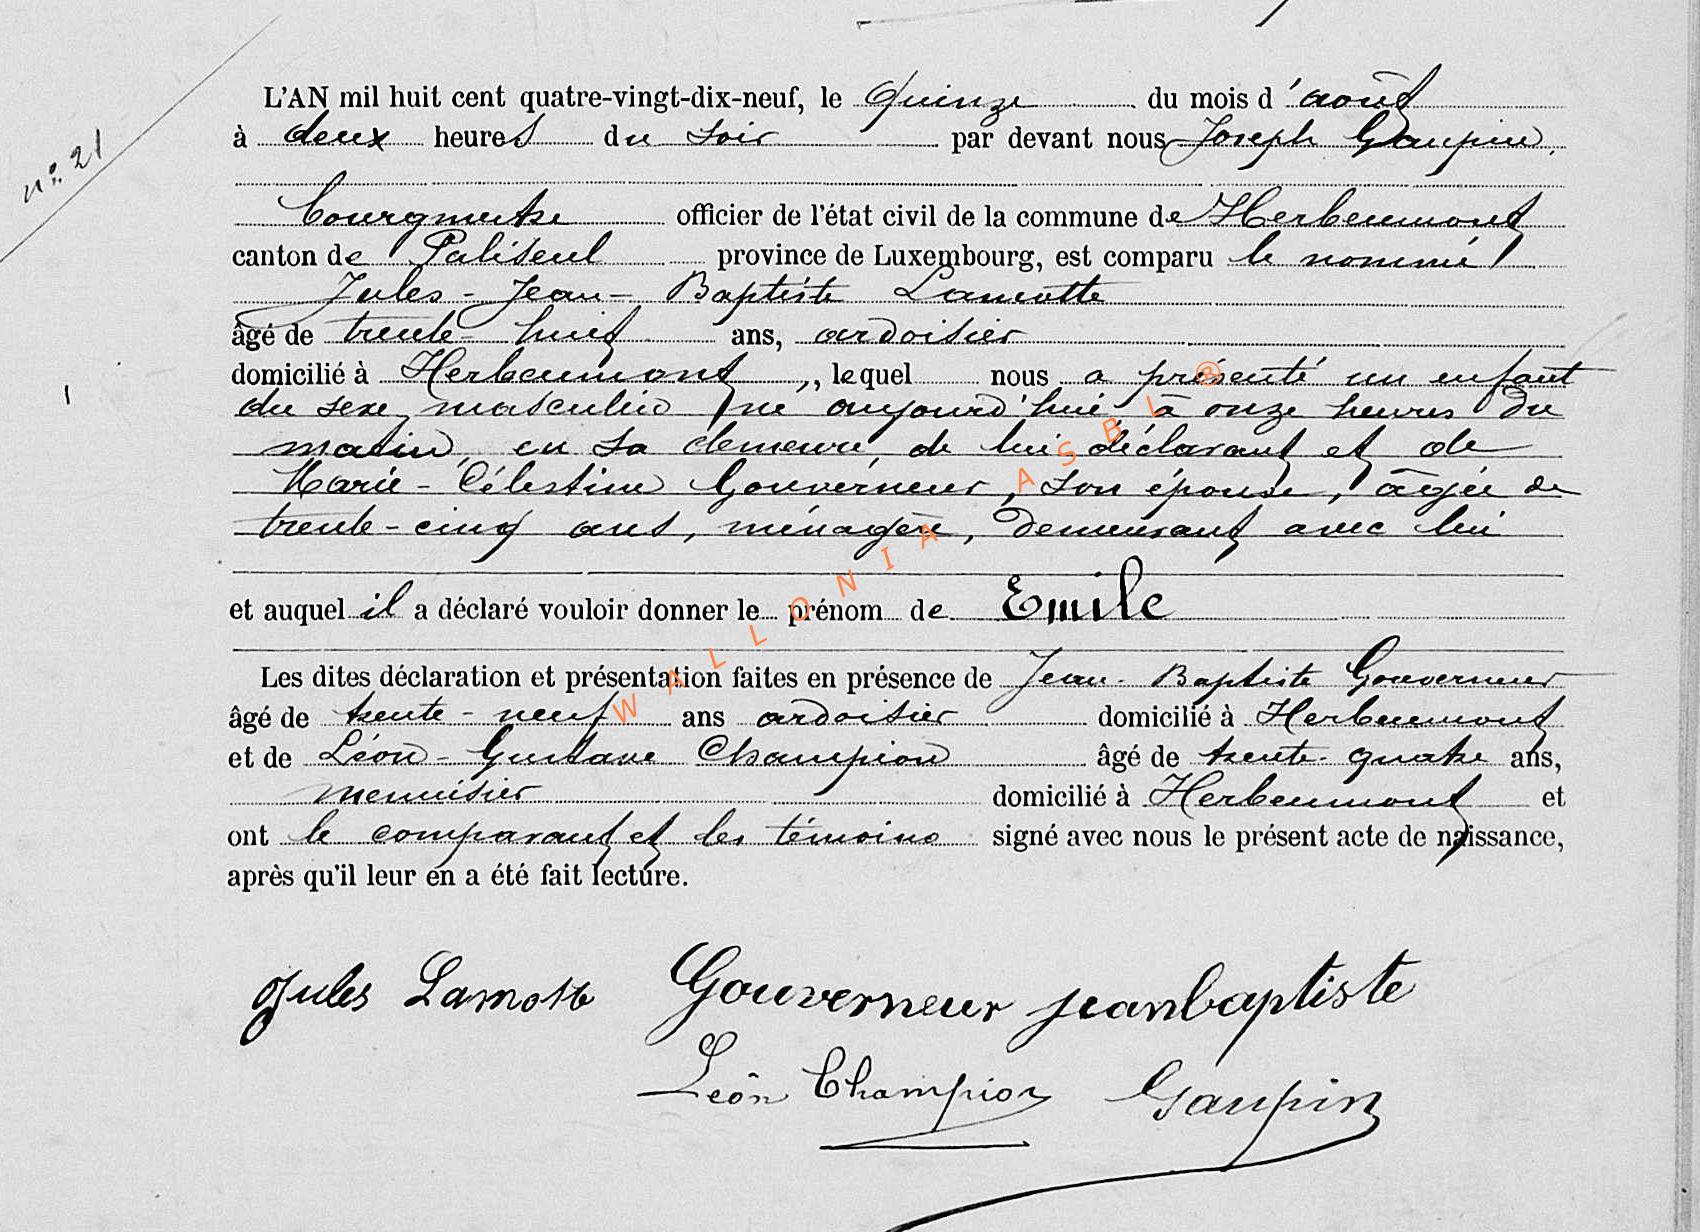 n° 21
L'AN mil huit cent quatre-vingt-dix-neuf, le Quinze du mois d'août
à deux heures du soir par devant nous Joseph Gaupin,
Bourgmestre officier de l'état civil de la commune de Herbeumont
canton de Paliseul province de Luxembourg, est comparu le nommé
Jules-Jean-Baptiste Lamotte
âgé de trente-huit ans, ardoisier
domicilié à Herbeumont ,, lequel nous a présenté un enfant
du sexe masculin né aujourd'hui à onze heures du
matin, en sa demeure, de lui déclarant et de
Marie-Célestine Gouverneur, son épouse, âgée de
trente-cinq ans, ménagère, demeurant avec lui
et auquel il a déclaré vouloir donner le prénom de Emile
Les dites déclaration et présentation faites en présence de Jean-Baptiste Gouverneur
âgé de trente-neuf ans ardoisier domicilié à Herbeumont
et de Léon-Gustave Champion âgé de trente-quatre ans,
menuisier domicilié à Herbeumont et
ont le comparant et les témoins signé avec nous le présent acte de naissance,
après qu'il leur en a été fait lecture.
Jules Lamotte Gouverneur jeanbaptiste
Léon Champion Gaupin
WALLONIA ASBL ®